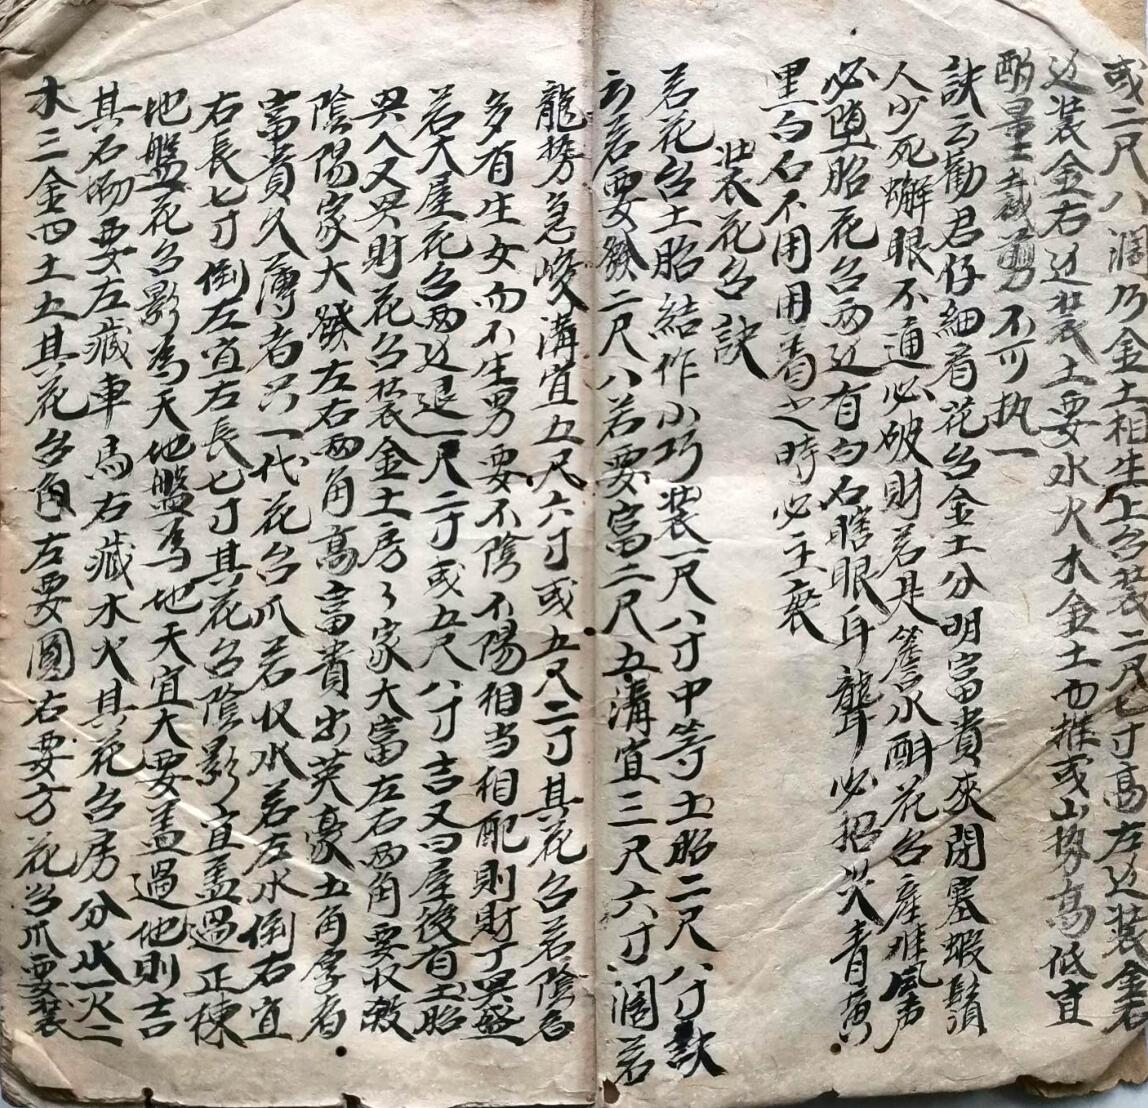 或二尺八濶乃金土相生土台裝二尺七寸高左边裝金若
边裝金右边裝土要水火木金土而推或山势高低宜
酌量土裁剪不可执一
訣云勸君仔細看花台金土分明富貴夾閉塞蝦鬚
人少死蠏眼不通必破財若是簷水酙花台產难風声
必墮胎花台两边有白石瞎眼耳聾必招災青黄
黑白石不用用着之時必主衰
裝花台訣
若花台土胎結作小巧裝一尺八寸中等土胎二尺八寸訣
云若要發二尺八若要富二尺五溝宜三尺六寸濶若
龍势急峻溝宜五尺六寸或五尺二寸其花台若陰多
多有生女而不生男要不陰不陽相当相配則財丁興盛
若大屋花台两边退一尺二寸或五尺八寸吉又曰屋後有土胎
興人又興財花台裝金土房々家大富左右两角要収斂
陰陽家大發左右两角高富貴出英豪土角字者
富貴久薄者只一代花台爪若収水若左水倒右宜
右長七寸倒左宜左長七寸其花台陰影宜盖過正棟
地盤花台影為天地盤為地天宜大要盖過地則吉
其石坳要左藏車馬右藏水火其花台房分从一火二
木三金四土五其花台角左要圓右要方花台爪要裝